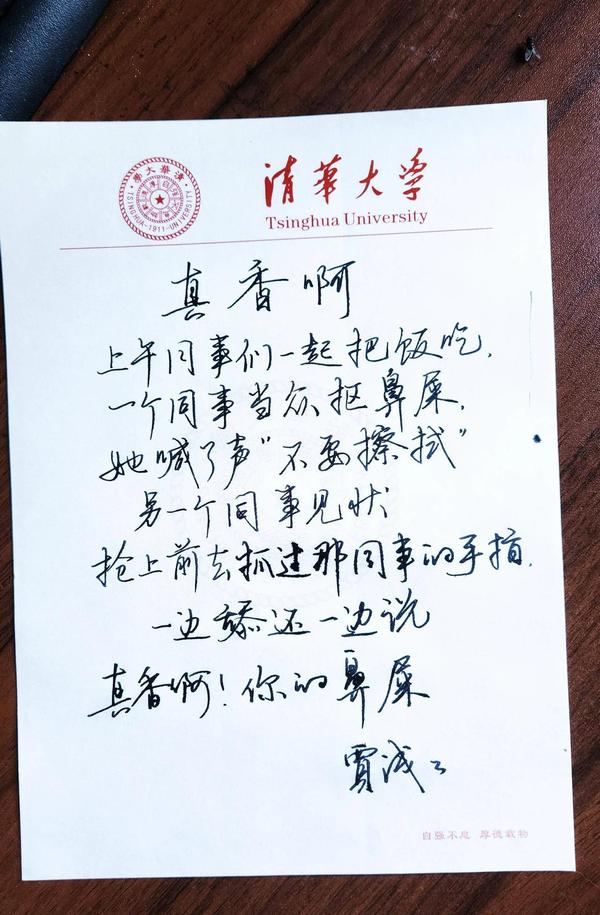 清華大學
·TSINGHUA-1911-UNIVERSITY·
清華大学
Tsinghua University
真香啊
上午同事们一起把饭吃.
一个同事当众抠鼻屎.
她喊了声"不要擦拭"
另一个同事见状
抢上前去抓过那同事的手指.
一边舔还一边说
真香啊!你的鼻屎
贾浅浅
自强不息 厚德载物